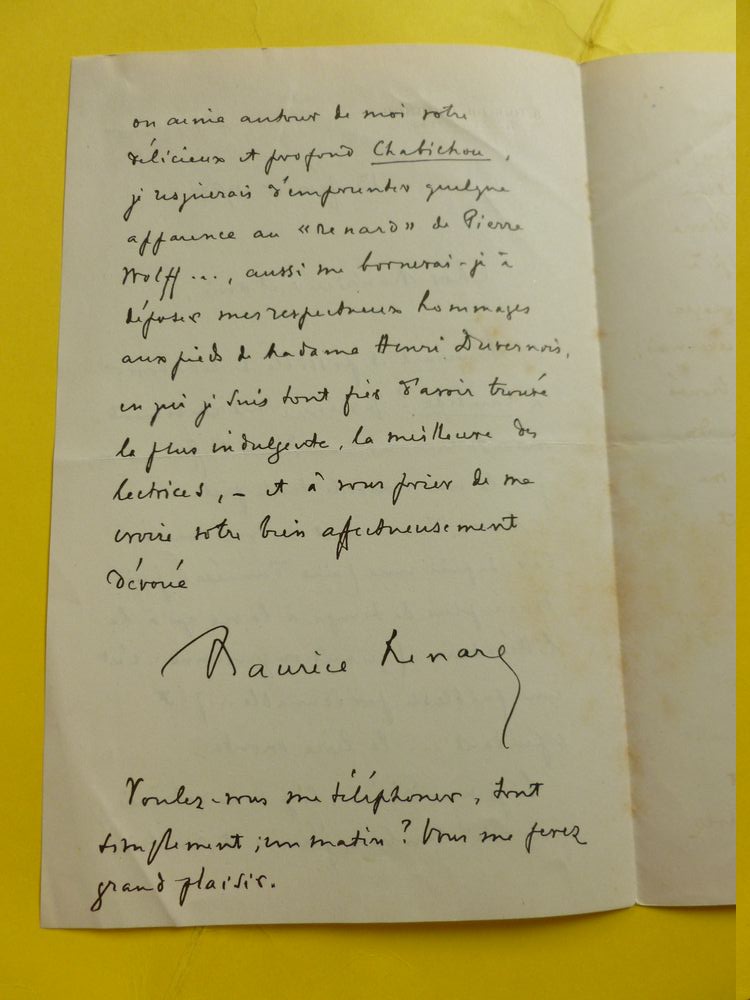 on aime autour de moi votre
délicieux et profond Chabichou,
je risquerais d'emprunter quelque
apparence au « renard » de Pierre
Wolff..., aussi me bornerai-je à
déposer mes respectueux hommages
aux pieds de Madame Henri Duvernois,
en qui je suis tout fier d'avoir trouvé
la plus indulgente, la meilleure des
lectrices, – et à vous prier de me
croire votre bien affectueusement
dévoué
Maurice Renard
Voulez-vous me téléphoner, tout
simplement, un matin ? Vous me ferez
grand plaisir.